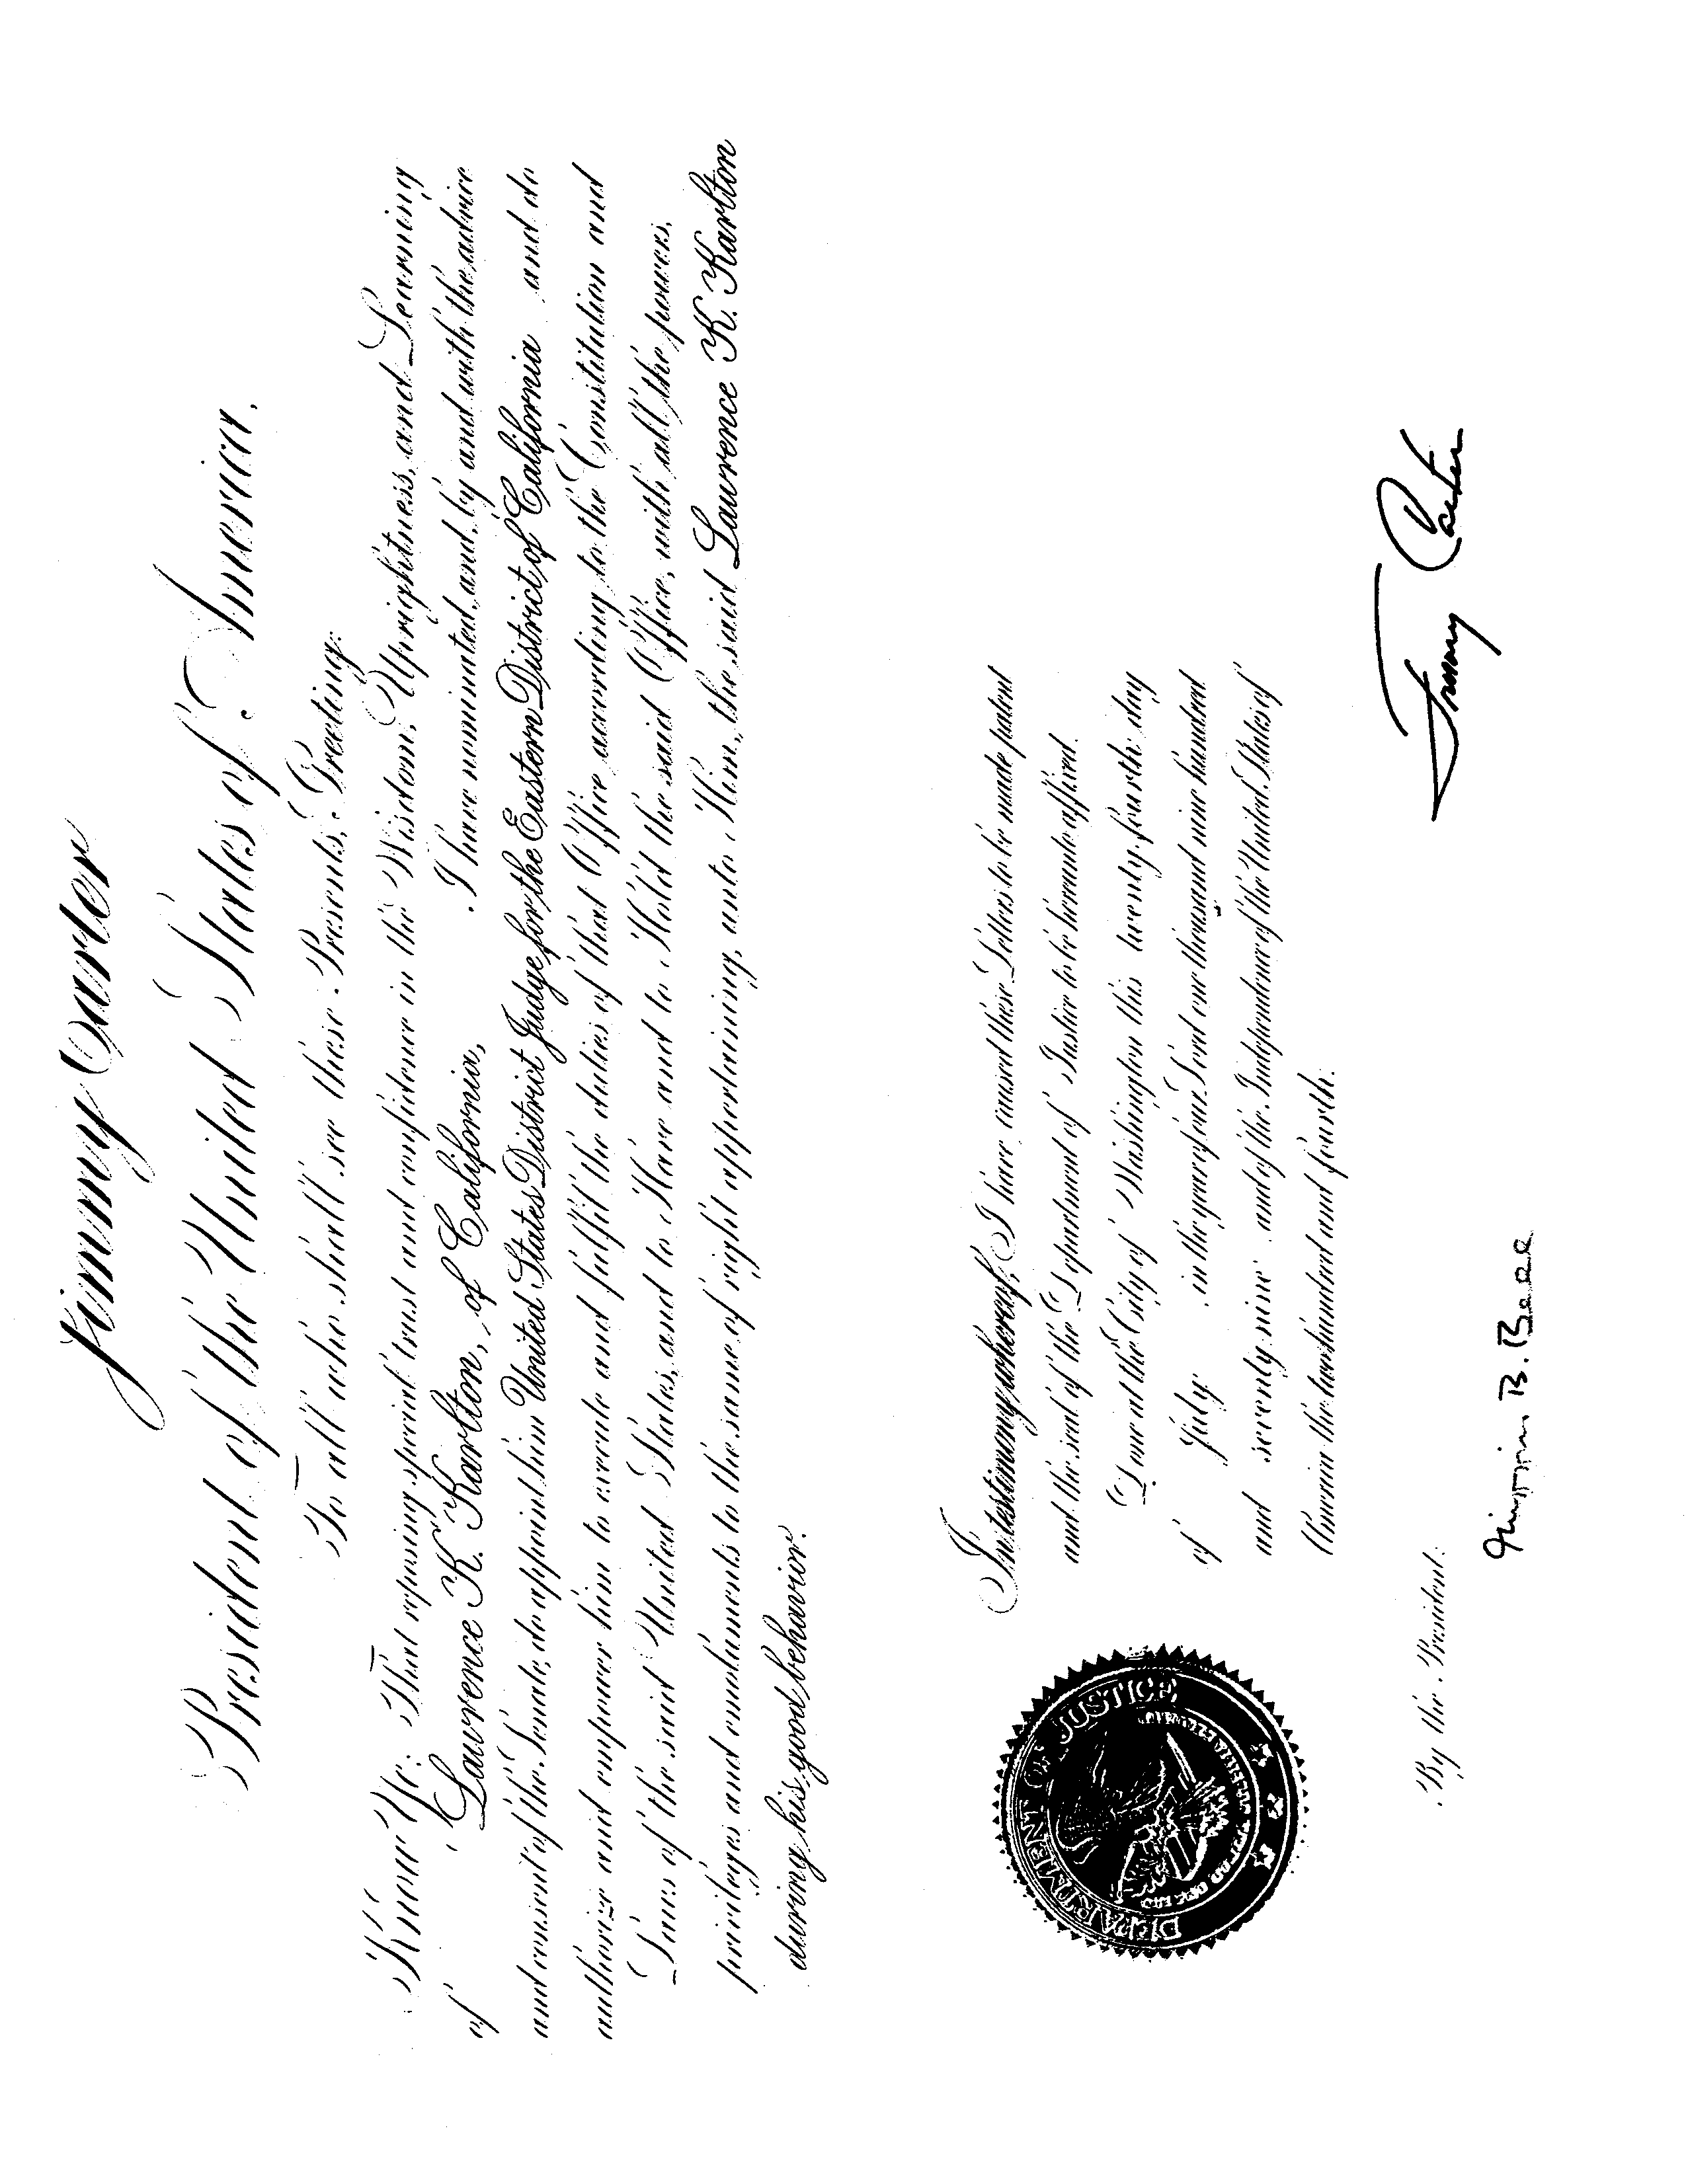 Jimmy Carter
President of the United States of America.
To all who shall see these Presents, Greeting:
Know Ye: That reposing special trust and confidence in the Wisdom, Uprightness, and Learning
of Lawrence K. Karlton, of California, I have nominated, and, by and with the advice
and consent of the Senate, do appoint him United States District Judge for the Eastern District of California and do
authorize and empower him to execute and fulfil the duties of that Office according to the Constitution and
Laws of the said United States, and to Have and to Hold the said Office, with all the powers,
privileges and emoluments to the same of right appertaining, unto Him, the said Lawrence K. Karlton
during his good behavior.
In testimony whereof, I have caused these Letters to be made patent
and the seal of the Department of Justice to be hereunto affixed.
Done at the City of Washington this twenty fourth day
of July in the year of our Lord one thousand nine hundred
and seventy nine and of the Independence of the United States of
America the two hundred and fourth.
DEPARTMENT OF JUSTICE
Jimmy Carter
By the President:
Griffin B. Bell